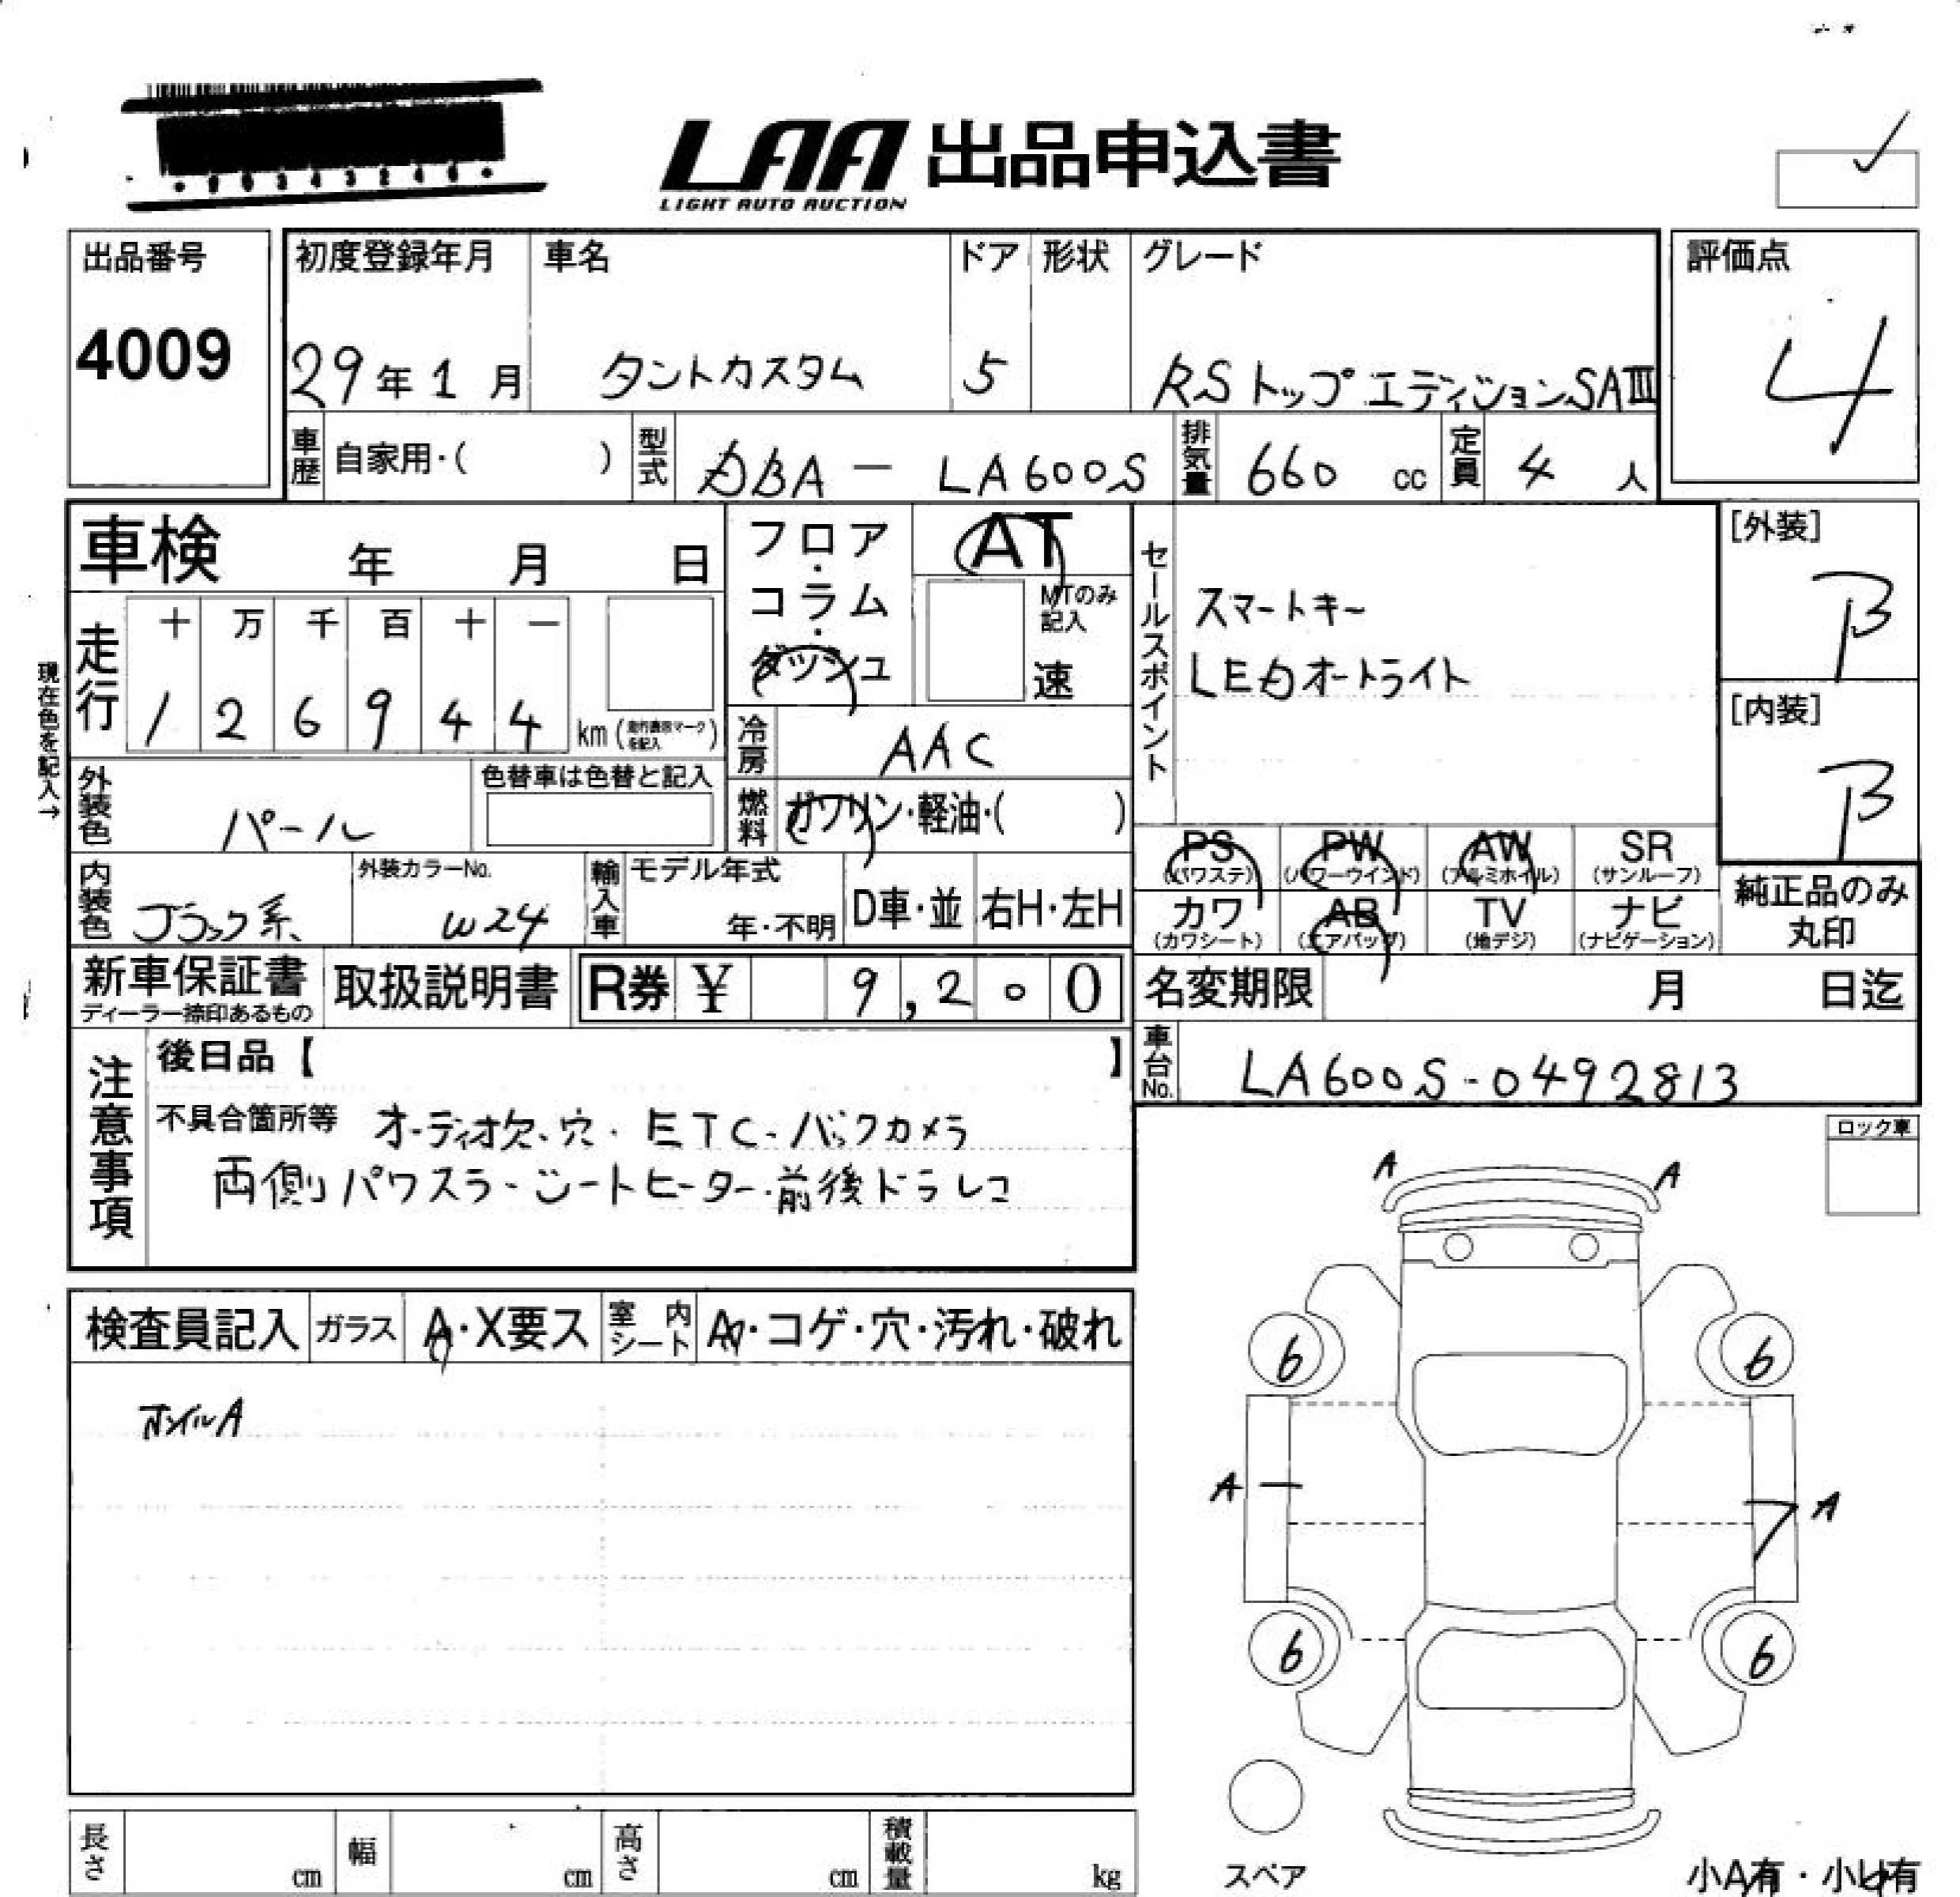 LAA 出品申込書
LIGHT AUTO AUCTION
出品番号
4009
初度登録年月
29年1月
車名
タントカスタム
ドア
5
形状
グレード
RSトップエディションSAⅢ
評価点
4
車歴 自家用・( )
型式 DBA - LA600S
排気量 660 cc
定員 4 人
車検 年 月 日
フロア・コラム・ダッシュ
AT
MTのみ記入
速
セールスポイント
スマートキー
LEDオートライト
[外装]
B
[内装]
B
現在色を記入→
走行
十 万 千 百 十 一
1 2 6 9 4 4 km (走行表示マークを記入)
冷房 AAC
燃料 ガソリン・軽油・( )
外装色 パール
色替車は色替と記入
内装色 ブラック系
外装カラーNo.
W24
輸入車 モデル年式
年・不明
D車・並 右H・左H
PS (パワステ)
PW (パワーウインド)
AW (アルミホイル)
SR (サンルーフ)
カワ (カワシート)
AB (エアバッグ)
TV (地デジ)
ナビ (ナビゲーション)
純正品のみ丸印
新車保証書
ディーラー捺印あるもの
取扱説明書
R券 ¥ 9,200
名変期限 月 日迄
車台No. LA600S-0492813
注意事項
後日品【 】
不具合箇所等 オーディオ欠、穴・ETC・バックカメラ
両側パワスラ・シートヒーター・前後ドラレコ
ロック車
検査員記入
ガラス A・X要ス
室内シート A・コゲ・穴・汚れ・破れ
ホイルA
A A
6 6
A A
6 6
スペア
小A有・小U有
長さ cm
幅 cm
高さ cm
積載量 kg